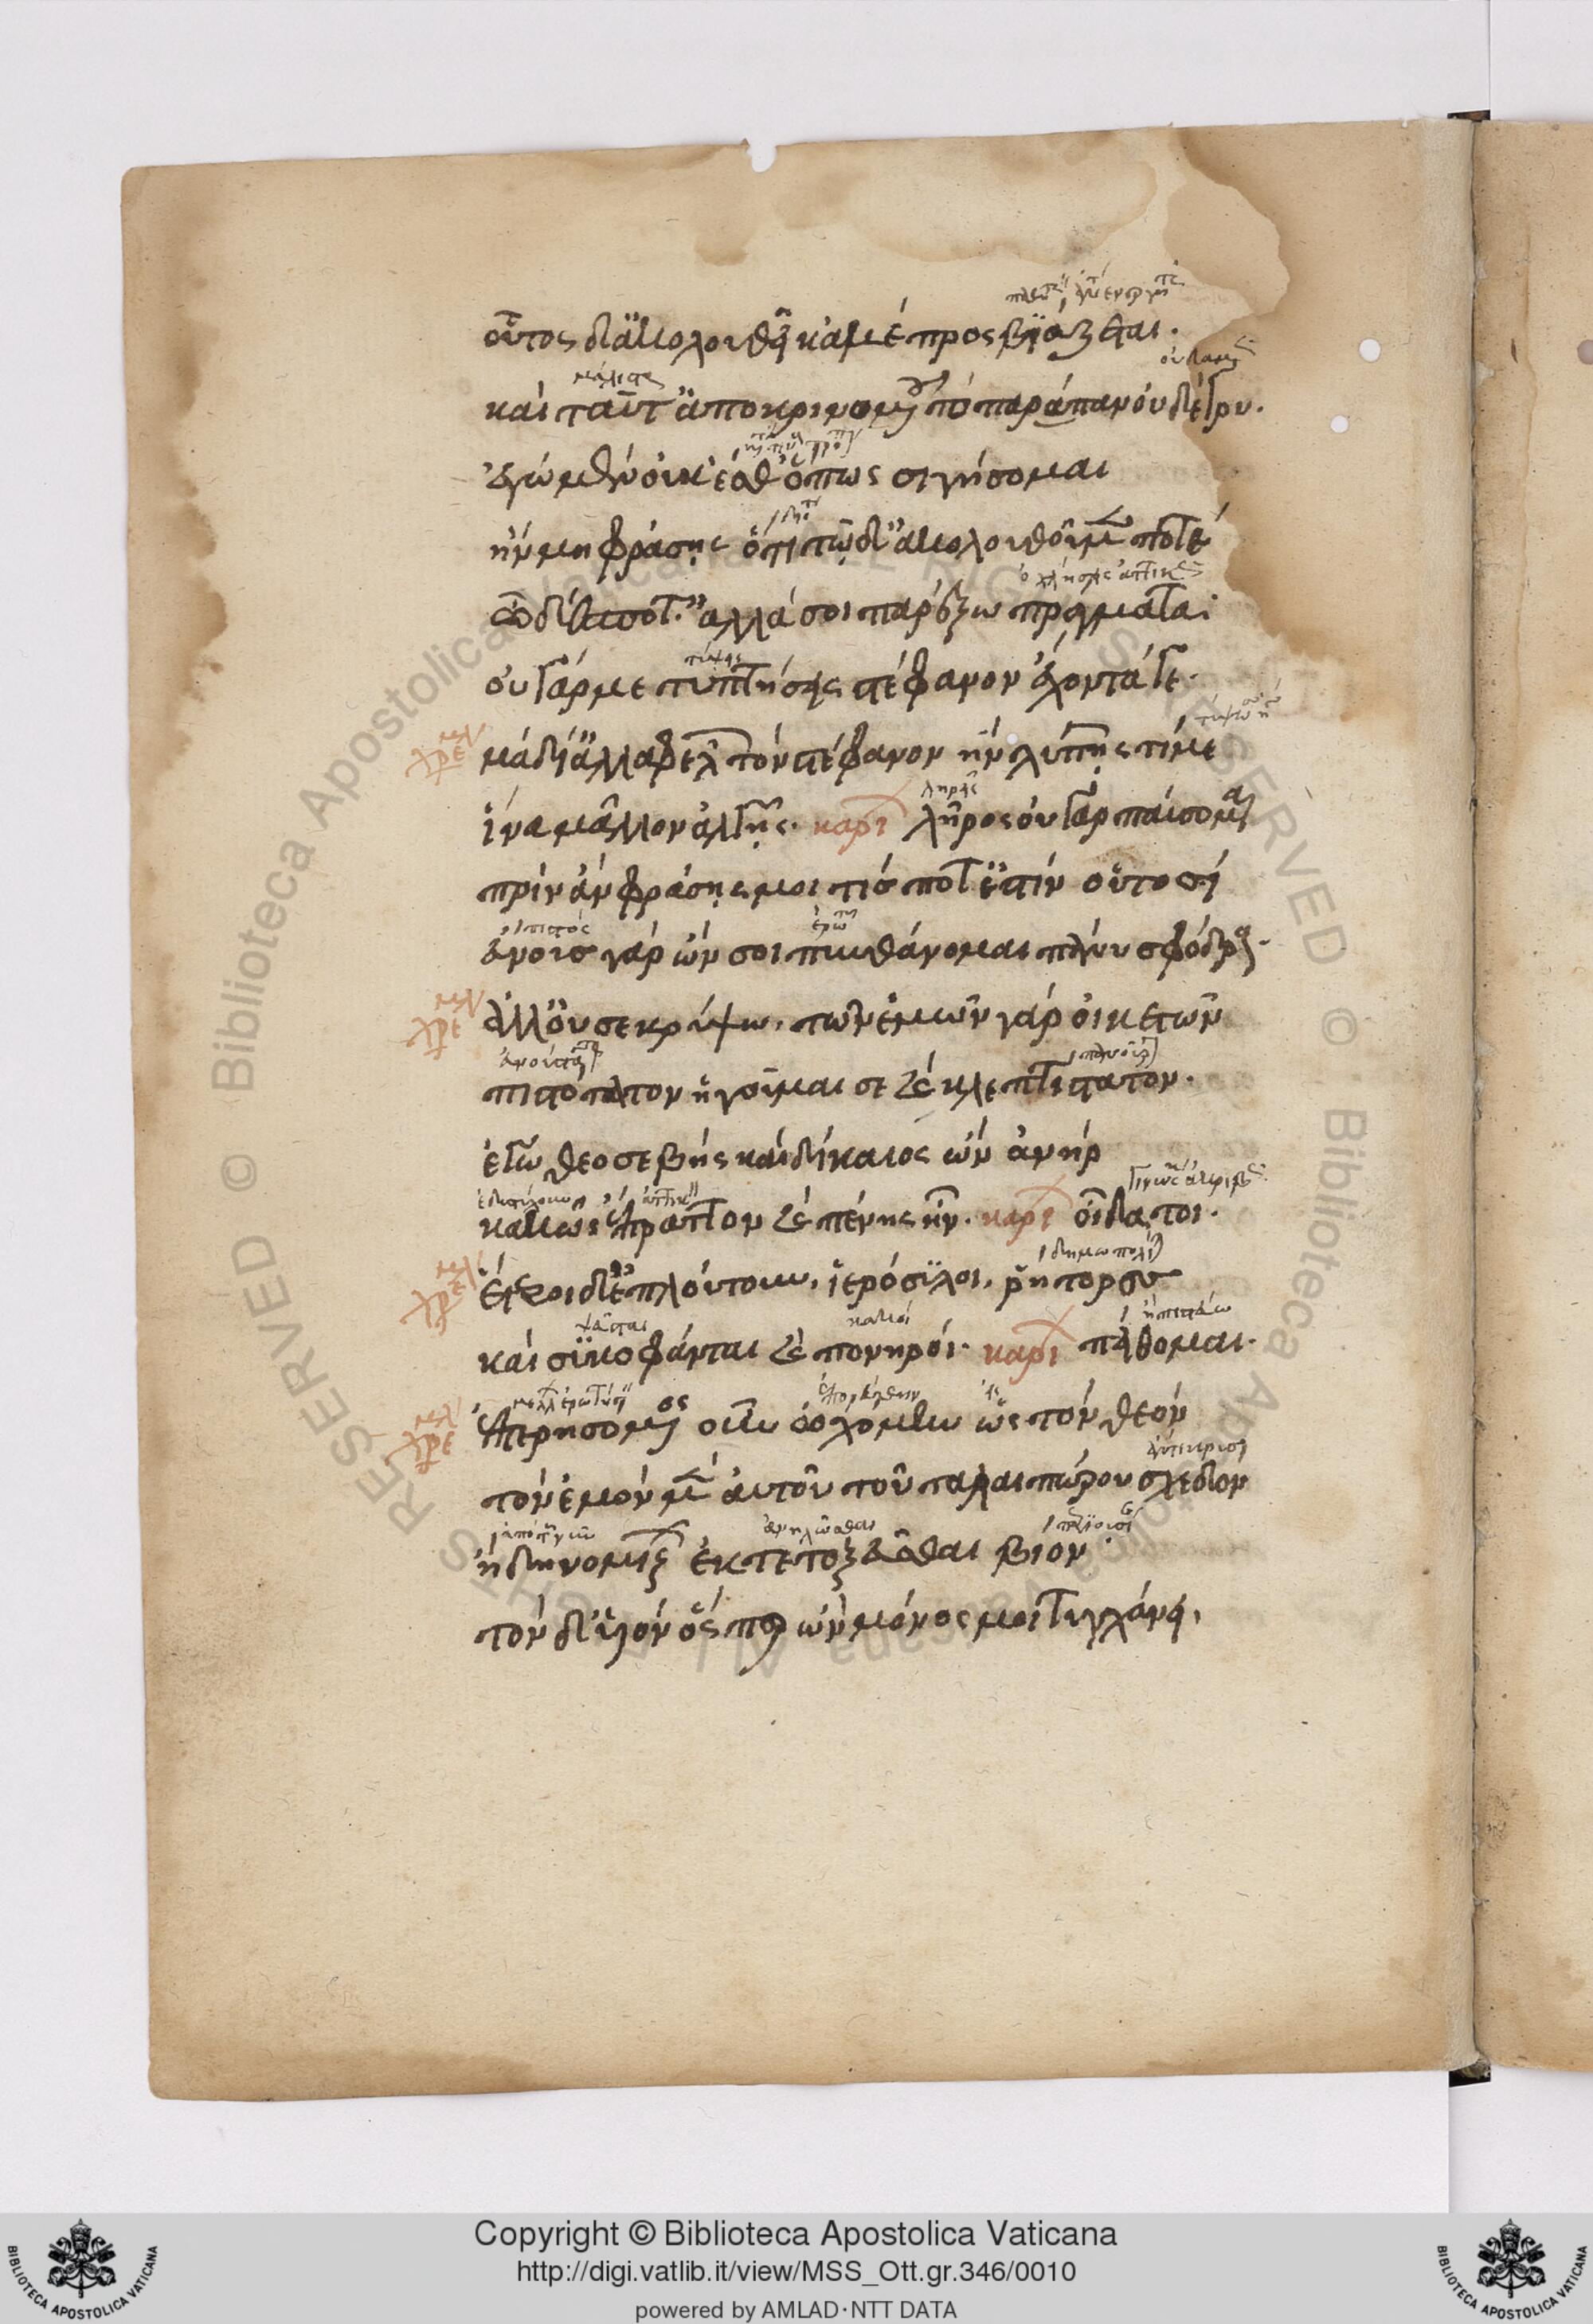 οὗτος δ' ἀκολουθεῖ κἀμὲ προσβϊάζεται.
μάλιστα
καὶ ταῦτ' ἀποκρινομένου τὸ παράπαν οὐδὲ γρύ.
ἐγὼ μὲν οὖν οὐκ ἔσθ' ὅπως σιγήσομαι
ἢν μὴ φράσῃς ὅτι τῷδ' ἀκολουθοῦμέν ποτε
ὦ δέσποτ' ἀλλά σοι παρέξω πράγματα·
τύψεις
οὐ γάρ με τυπτήσεις στέφανον ἔχοντά γε.
χρε
μὰ δί' ἀλλ' ἀφελὼν τὸν στέφανον ἢν λυπῇς τί με
ἵνα μᾶλλον ἀλγῇς. καρι λῆρος οὐ γὰρ παύσομαι
πρὶν ἂν φράσῃς μοι τίς ποτ' ἐστὶν οὑτοσί
εὔνους γὰρ ὤν σοι πυνθάνομαι πάνυ σφόδρα.
χρε
ἀλλ' οὔ σε κρύψω. τῶν ἐμῶν γὰρ οἰκετῶν
πιστότατον ἡγοῦμαί σε καὶ κλεπτίστατον.
ἐγὼ θεοσεβὴς καὶ δίκαιος ὢν ἀνὴρ
κακῶς ἔπραττον καὶ πένης ἦν. καρι οἶδά τοι.
χρε
ἕτεροι δ' ἐπλούτουν, ἱερόσϋλοι, ῥήτορες
κακοί
καὶ σϋκοφάνται καὶ πονηροί. καρι πείθομαι.
χρε
ἐπερησόμενος οὖν ᾠχόμην ὡς τὸν θεὸν
τὸν ἐμὸν μὲν αὐτοῦ τοῦ ταλαιπώρου σχεδὸν
ἤδη νομίζων ἐκτετοξεῦσθαι βίον
τὸν δ' υἱὸν ὅσπερ ὢν μόνος μοι τυγχάνει,
© Biblioteca Apostolica Vaticana ALL RIGHTS RESERVED
© Biblioteca Apostolica Vaticana ALL RIGHTS RESERVED
BIBLIOTECA APOSTOLICA VATICANA
Copyright © Biblioteca Apostolica Vaticana
http://digi.vatlib.it/view/MSS_Ott.gr.346/0010
powered by AMLAD·NTT DATA
BIBLIOTECA APOSTOLICA VATICANA